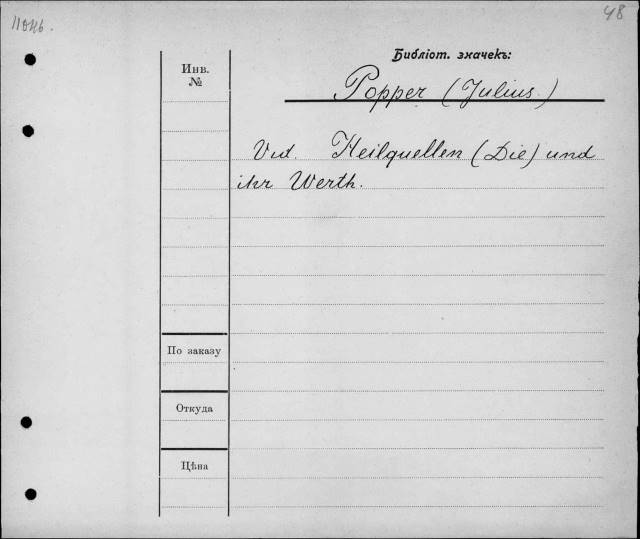 48
Библіот. значекъ:
Инв.
№
Popper (Julius.)
Vid. Heilquellen (Die) und
ihr Werth.
По заказу
Откуда
Цѣна